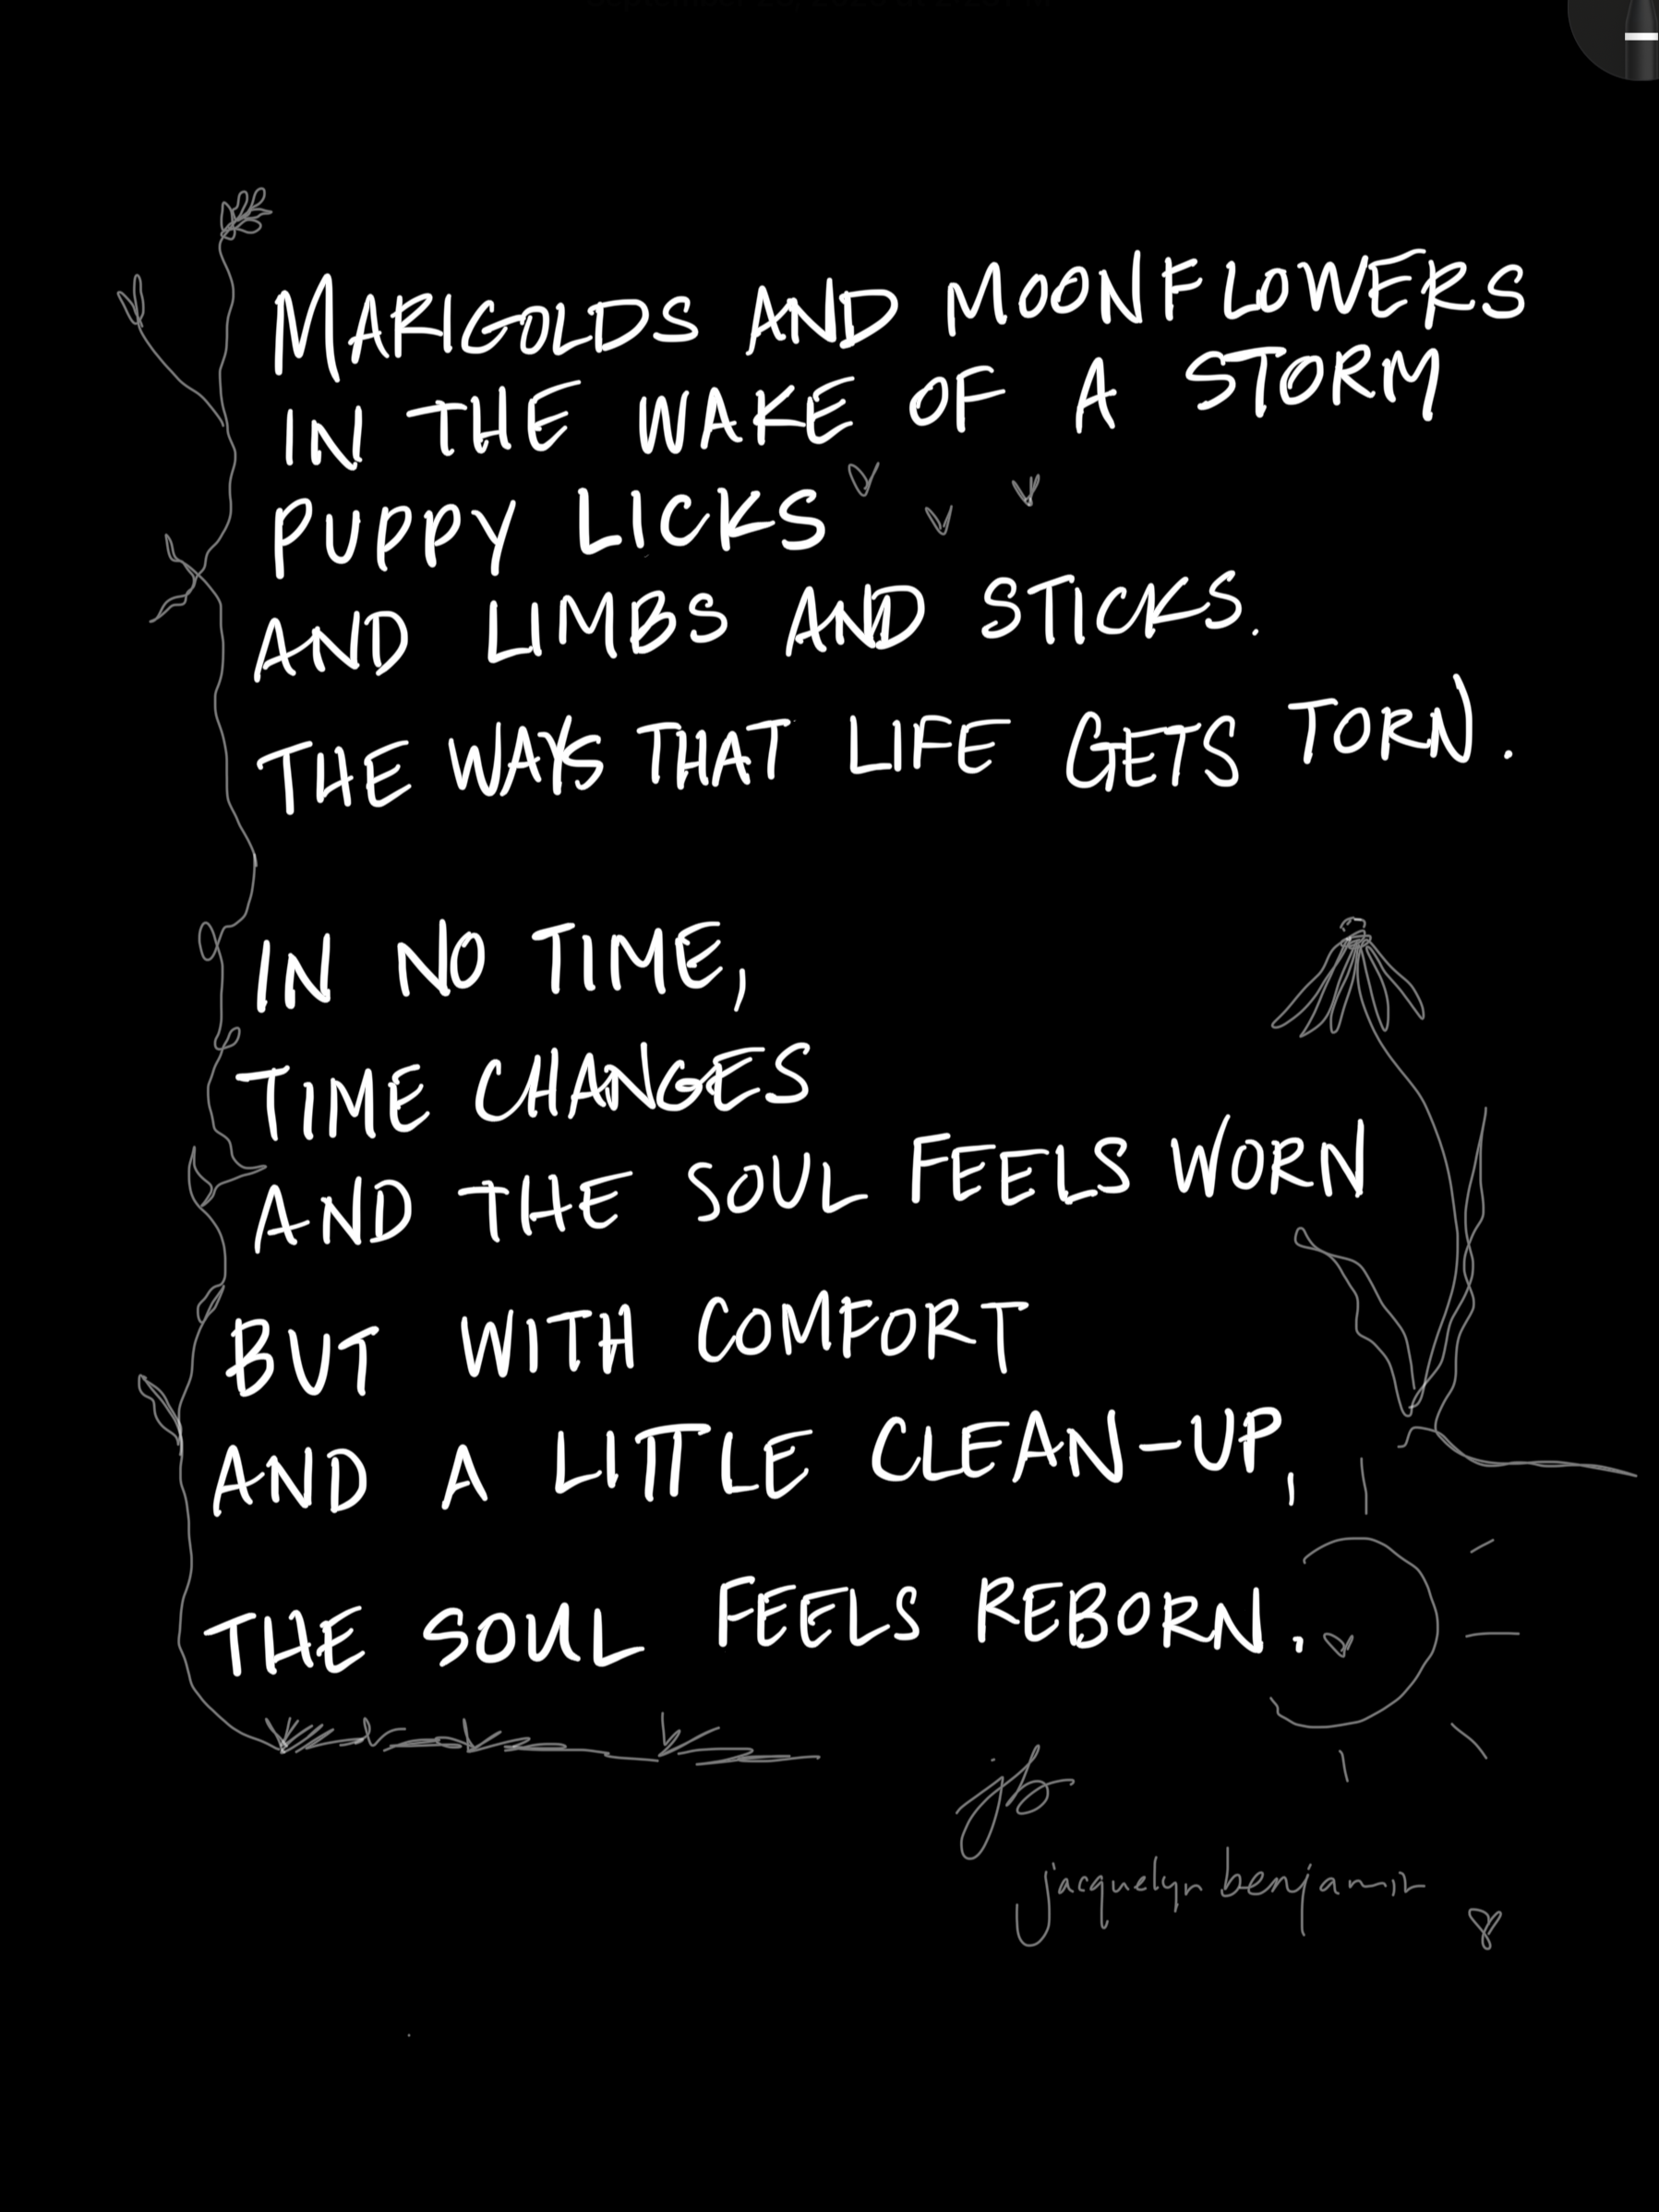 MARIGOLDS AND MOONFLOWERS
IN THE WAKE OF A STORM
PUPPY LICKS
AND LIMBS AND STICKS.
THE WAYS THAT LIFE GETS TORN.
IN NO TIME,
TIME CHANGES
AND THE SOUL FEELS WORN
BUT WITH COMFORT
AND A LITTLE CLEAN-UP,
THE SOUL FEELS REBORN.
jb
jacquelyn benjamin